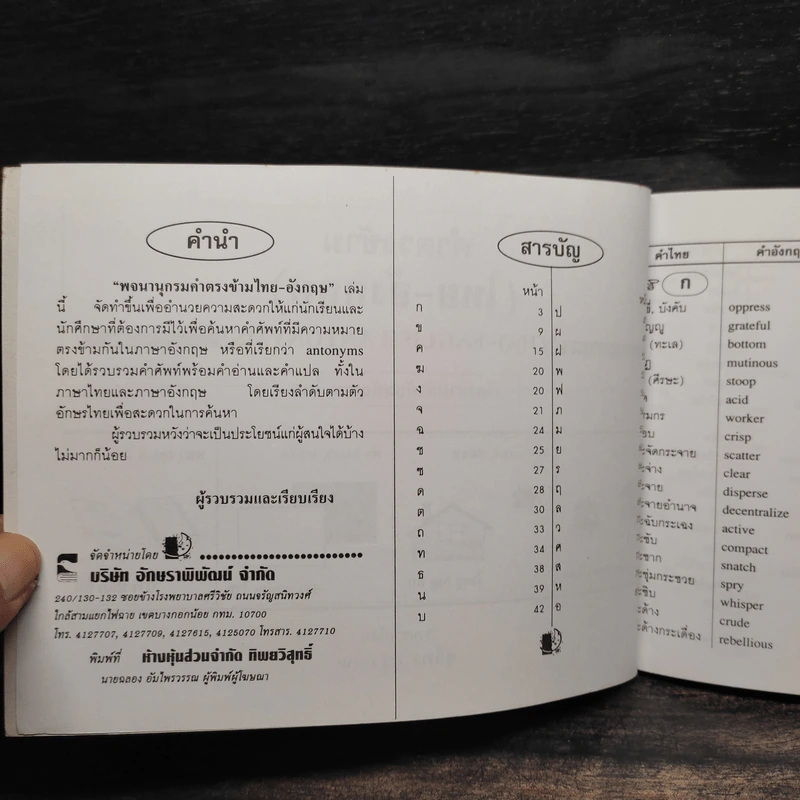 คำนำ
"พจนานุกรมคำตรงข้ามไทย-อังกฤษ" เล่ม
นี้ จัดทำขึ้นเพื่ออำนวยความสะดวกให้แก่นักเรียนและ
นักศึกษาที่ต้องการมีไว้เพื่อค้นหาคำศัพท์ที่มีความหมาย
ตรงข้ามกันในภาษาอังกฤษ หรือที่เรียกว่า antonyms
โดยได้รวบรวมคำศัพท์พร้อมคำอ่านและคำแปล ทั้งใน
ภาษาไทยและภาษาอังกฤษ โดยเรียงลำดับตามตัว
อักษรไทยเพื่อสะดวกในการค้นหา
ผู้รวบรวมหวังว่าจะเป็นประโยชน์แก่ผู้สนใจได้บ้าง
ไม่มากก็น้อย
ผู้รวบรวมและเรียบเรียง
จัดจำหน่ายโดย
บริษัท อักษราพิพัฒน์ จำกัด
240/130-132 ซอยข้างโรงพยาบาลศรีวิชัย ถนนจรัญสนิทวงศ์
ใกล้สามแยกไฟฉาย เขตบางกอกน้อย กทม. 10700
โทร. 4127707, 4127709, 4127615, 4125070 โทรสาร. 4127710
พิมพ์ที่ ห้างหุ้นส่วนจำกัด ทิพยวิสุทธิ์
นายฉลอง อัมไพรวรรณ ผู้พิมพ์ผู้โฆษณา
สารบัญ
หน้า
ก 3 ป
ข 9 ผ
ค 15 ฝ
ฆ 20 พ
ง 20 ฟ
จ 21 ภ
ฉ 24 ม
ช 25 ย
ซ 27 ร
ด 28 ฤ
ต 30 ล
ถ 33 ว
ท 34 ศ
ธ 38 ส
น 39 ห
บ 42 อ
คำไทย คำอังกฤ
ก
บังคับ oppress
grateful
(ทะเล) bottom
mutinous
(ศีรษะ) stoop
acid
worker
crisp
scatter
clear
disperse
decentralize
active
compact
snatch
spry
whisper
crude
rebellious